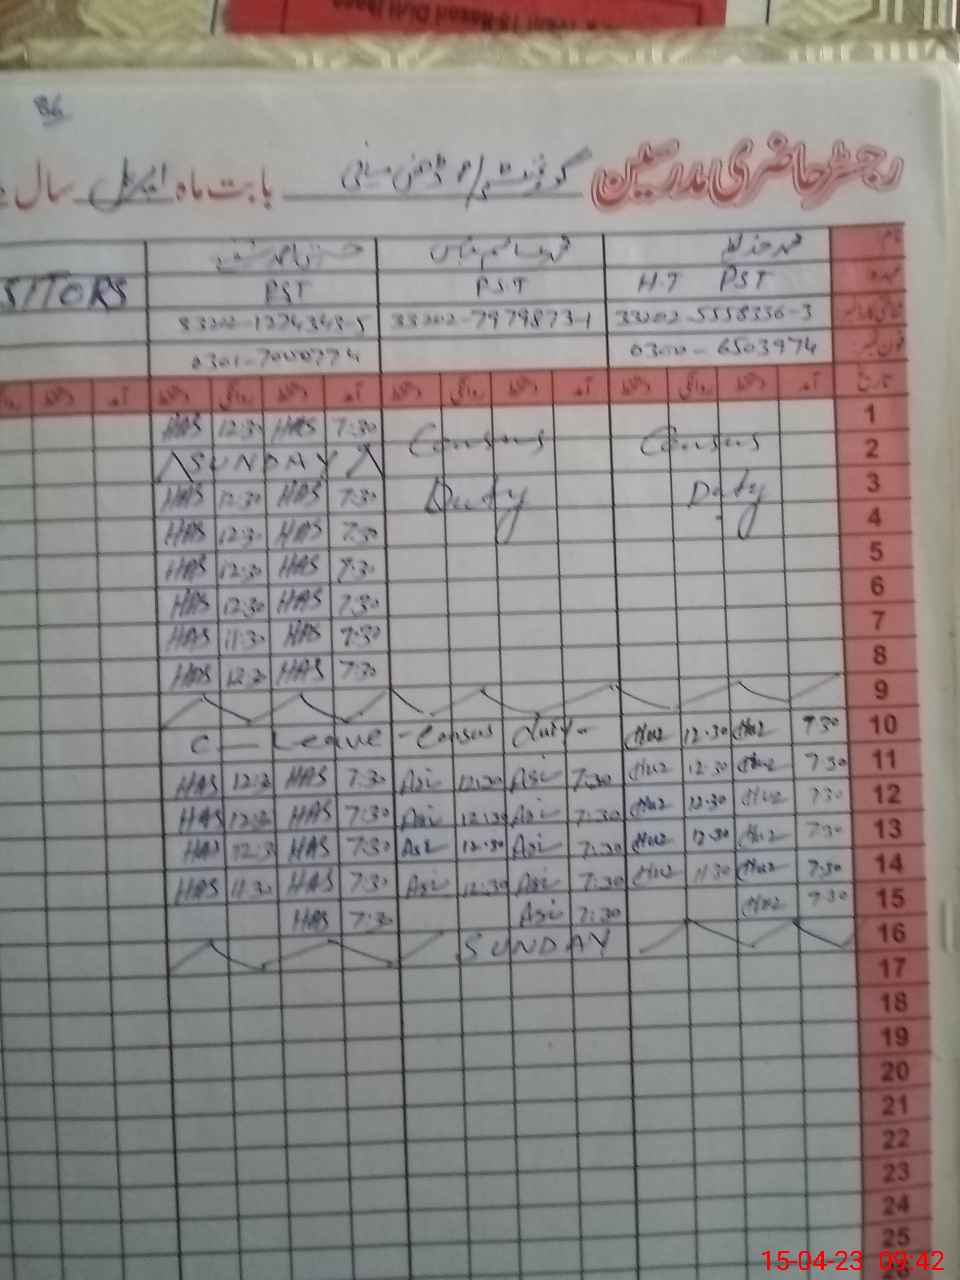 86
رجسٹر حاضری مدرسین بابت ماہ اپریل سال
نام
SITORS PST PST H.T PST
33202-7979873-1 33202-5558336-3
0300-6503974
تاریخ آمد دستخط روانگی دستخط آمد دستخط روانگی دستخط آمد دستخط روانگی دستخط آمد دستخط
HAS 12:30 HAS 7:30 1
SUNDAY Census Census 2
HAS 12:30 HAS 7:30 Duty Duty 3
HAS 12:30 HAS 7:30 4
HAS 12:30 HAS 7:30 5
HAS 12:30 HAS 7:30 6
HAS 11:30 HAS 7:30 7
HAS 12:30 HAS 7:30 8
9
C- Leave - Census duty - Huz 12:30 Huz 7:30 10
HAS 12:30 HAS 7:30 Asi 12:30 Asi 7:30 Huz 12:30 Huz 7:30 11
HAS 12:30 HAS 7:30 Asi 12:30 Asi 7:30 Huz 12:30 Huz 7:30 12
HAS 12:30 HAS 7:30 Asi 12:30 Asi 7:30 Huz 12:30 Huz 7:30 13
HAS 11:30 HAS 7:30 Asi 12:30 Asi 7:30 Huz 11:30 Huz 7:30 14
HAS 7:30 Asi 7:30 Huz 7:30 15
SUNDAY 16
17
18
19
20
21
22
23
24
25
15-04-23 09:42